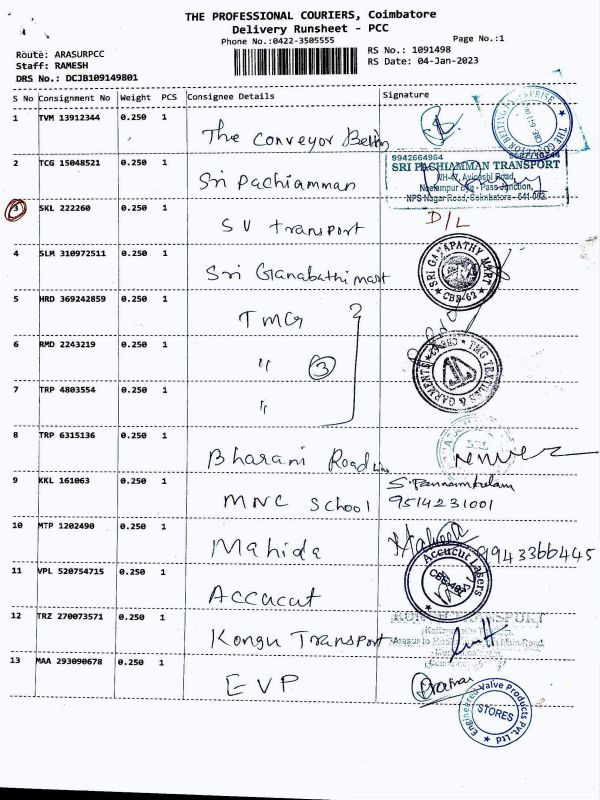 THE PROFESSIONAL COURIERS, Coimbatore
Delivery Runsheet - PCC
Phone No.:0422-3505555
Page No.:1
Route: ARASURPCC
RS No.: 1091498
Staff: RAMESH
RS Date: 04-Jan-2023
DRS No.: DCJB109149801
S No Consignment No Weight PCS Consignee Details Signature
1 TVM 13912344 0.250 1 The Conveyor Belting
2 TCG 15048521 0.250 1 Sri Pachiamman
9942664964
SRI PACHIAMMAN TRANSPORT
NH-47, Avinashi Road,
Neelampur Bye - Pass Junction,
NPS Nagar Road, Coimbatore - 641 062.
3 SKL 222260 0.250 1 SV transport D/L
4 SLM 310972511 0.250 1 Sri Ganabathi mart
SRI GANAPATHY MART
CBE-62
5 HRD 369242859 0.250 1 TMG
6 RMD 2243219 0.250 1 " 3
TMG TEXTILES & GARMENTS
7 TRP 4803554 0.250 1 "
8 TRP 6315136 0.250 1 Bharani Road Line
9 KKL 161063 0.250 1 MNC School 9514231001
10 MTP 1202490 0.250 1 Mahida 9943366445
11 VPL 520754715 0.250 1 Accucut
Accucut Lasers
12 TRZ 270073571 0.250 1 Kongu Transport
13 MAA 293090678 0.250 1 EVP
Engineered Valve Products Pvt. Ltd
STORES